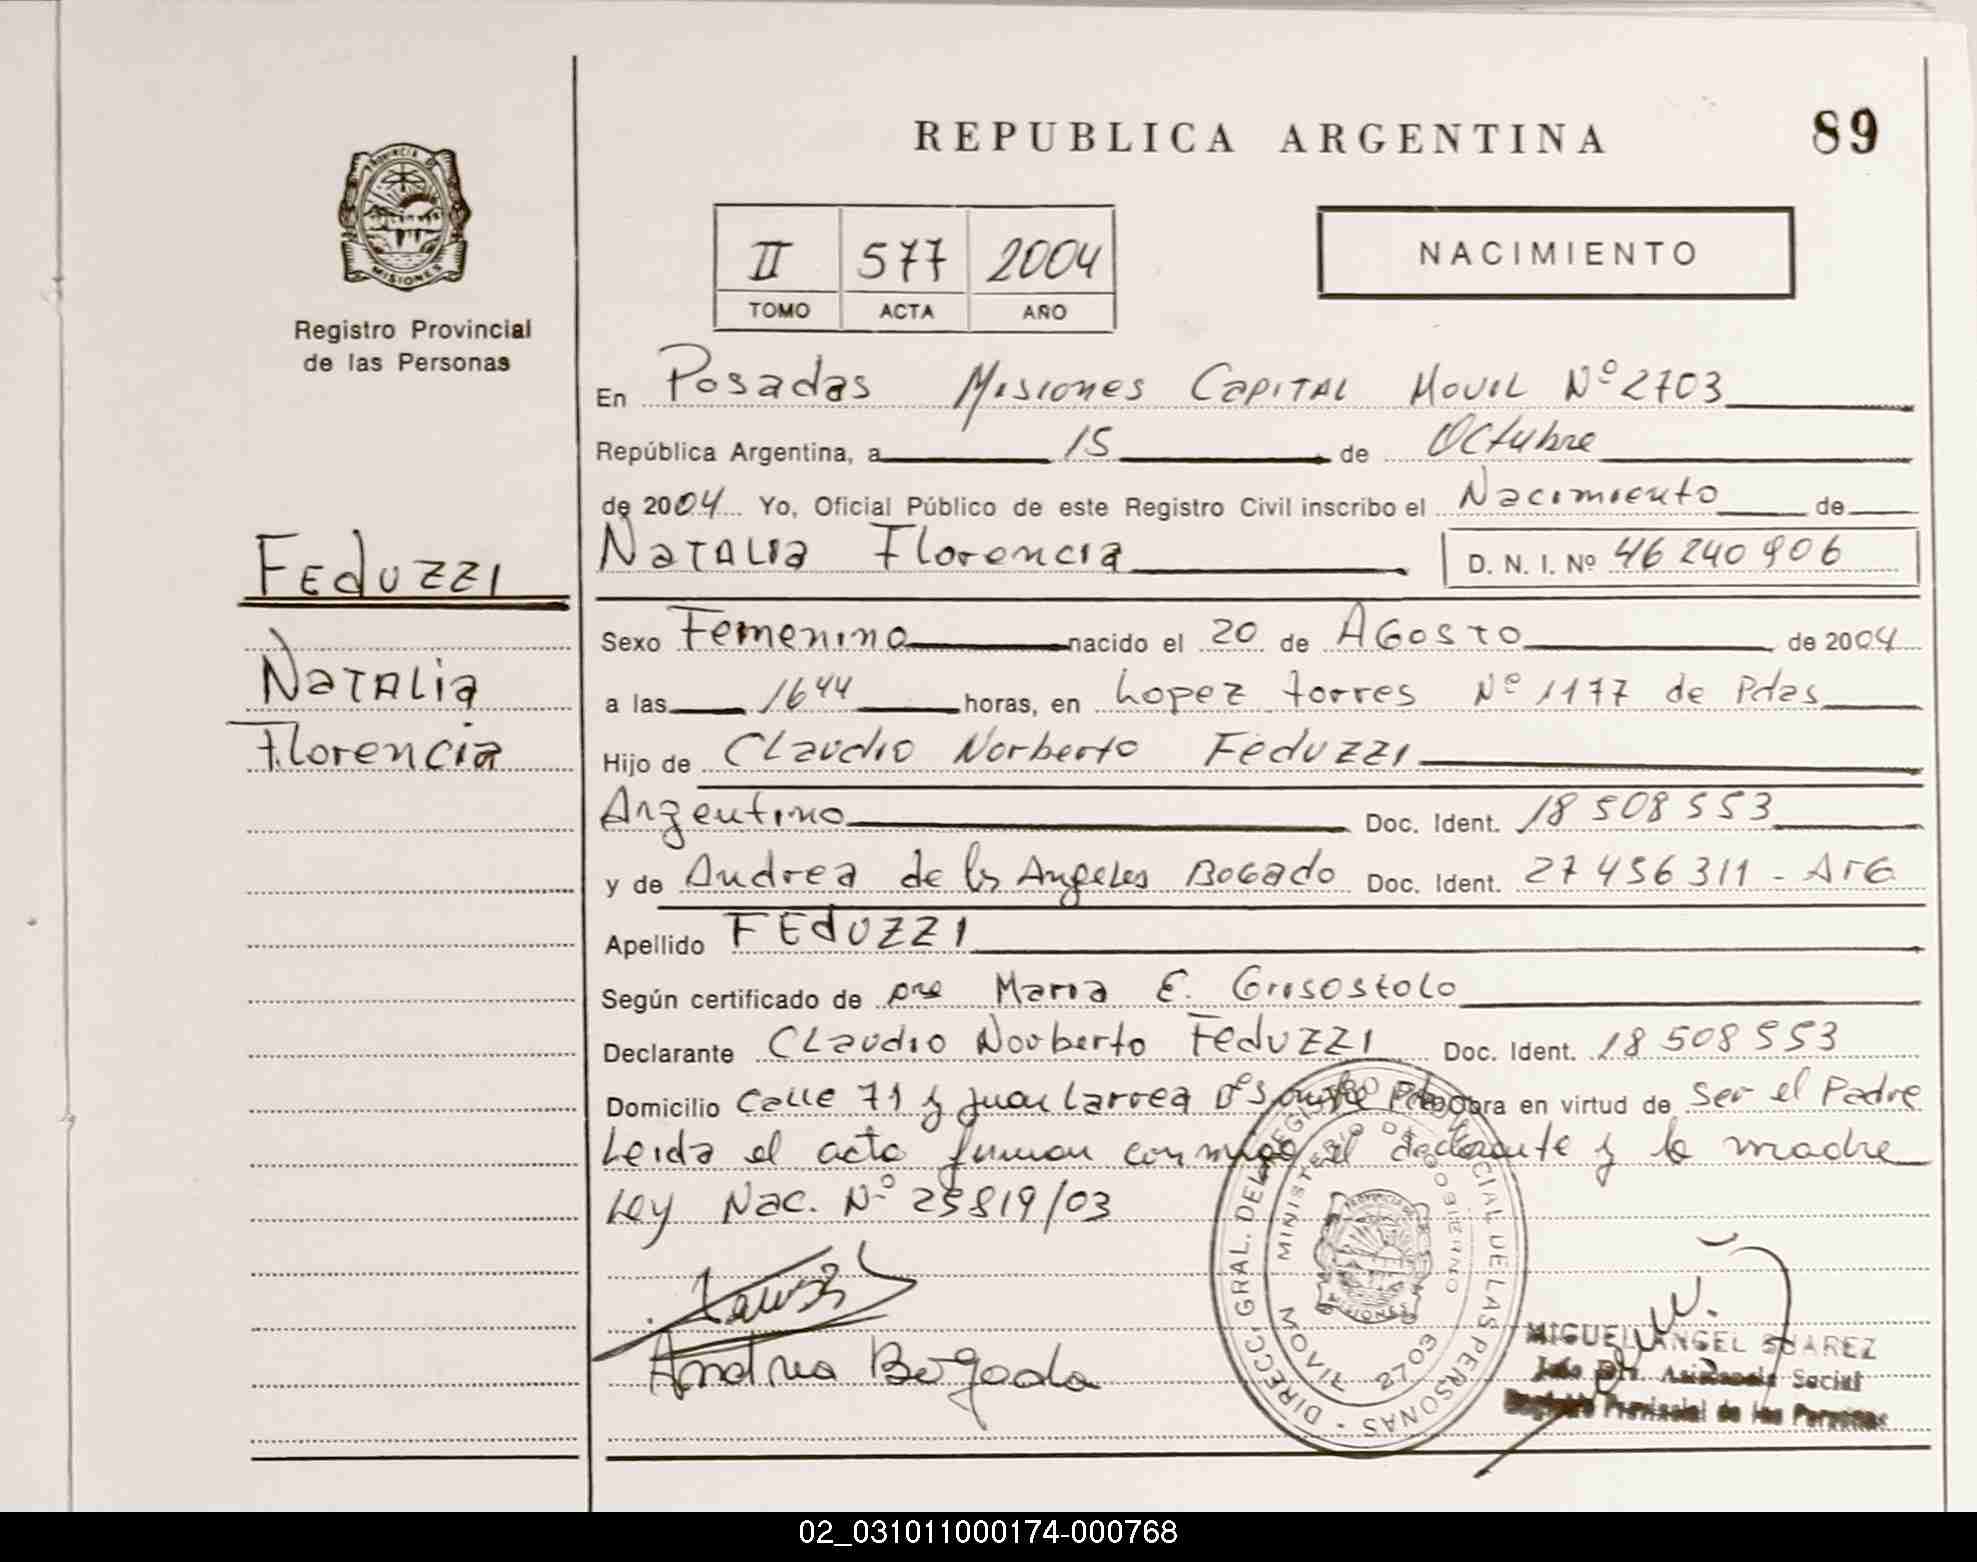 REPUBLICA ARGENTINA
89
PROVINCIA DE
MISIONES
Registro Provincial
de las Personas
II 577 2004
TOMO ACTA AÑO
NACIMIENTO
En Posadas Misiones Capital Movil Nº 2703
República Argentina, a 15 de Octubre
de 2004 Yo, Oficial Público de este Registro Civil inscribo el Nacimiento de
Natalia Florencia D. N. I. Nº 46 240 906
Feduzzi
Natalia
Florencia
Sexo Femenino nacido el 20 de Agosto de 2004
a las 16 44 horas, en Lopez torres Nº 1177 de Pdas
Hijo de Claudio Norberto Feduzzi
Argentino Doc. Ident. 18 508 553
y de Andrea de los Angeles Bogado Doc. Ident. 27 456 311 - Arg
Apellido Feduzzi
Según certificado de Maria E. Grisostolo
Declarante Claudio Norberto Feduzzi Doc. Ident. 18 508 553
Domicilio Calle 71 y Juan Larrea Obra en virtud de ser el Padre
Leida el acta firman conmigo el declarante y la madre
Ley Nac. Nº 25819/03
Andrea Bogado
DIRECC. GRAL. DEL REGISTRO PROVINCIAL DE LAS PERSONAS
MINISTERIO DE GOBIERNO
MOVIL 2703
MIGUEL ANGEL SUAREZ
Jefe Dto. Asistencia Social
Registro Provincial de las Personas
02_031011000174-000768